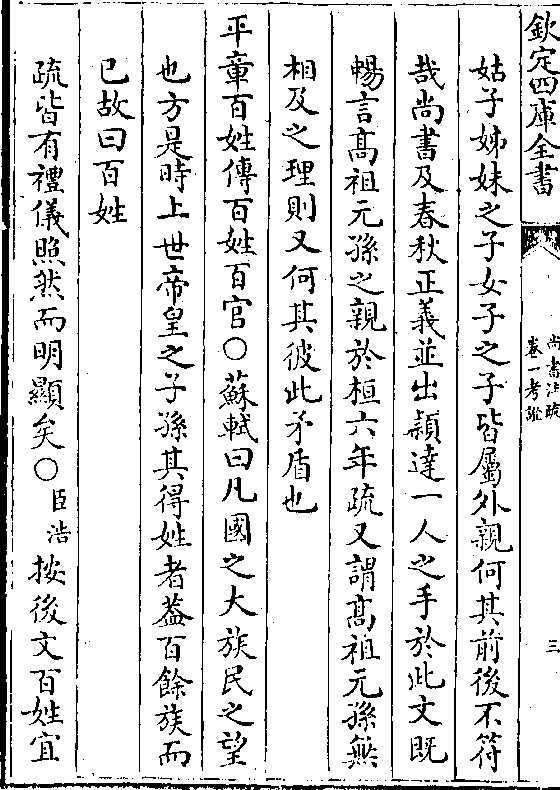 欽定四庫全書
尚書注疏
卷一考證
三
姑子姊妹之子女子之子皆屬外親何其前後不符
哉尚書及春秋正義並出頴達一人之手於此文既
暢言髙祖元孫之親於桓六年疏又謂髙祖元孫無
相及之理則又何其彼此矛盾也
平章百姓傳百姓百官○蘇軾曰凡國之大族民之望
也方是時上世帝皇之子孫其得姓者葢百餘族而
已故曰百姓
疏皆有禮儀照然而明顯矣○臣浩按後文百姓宜